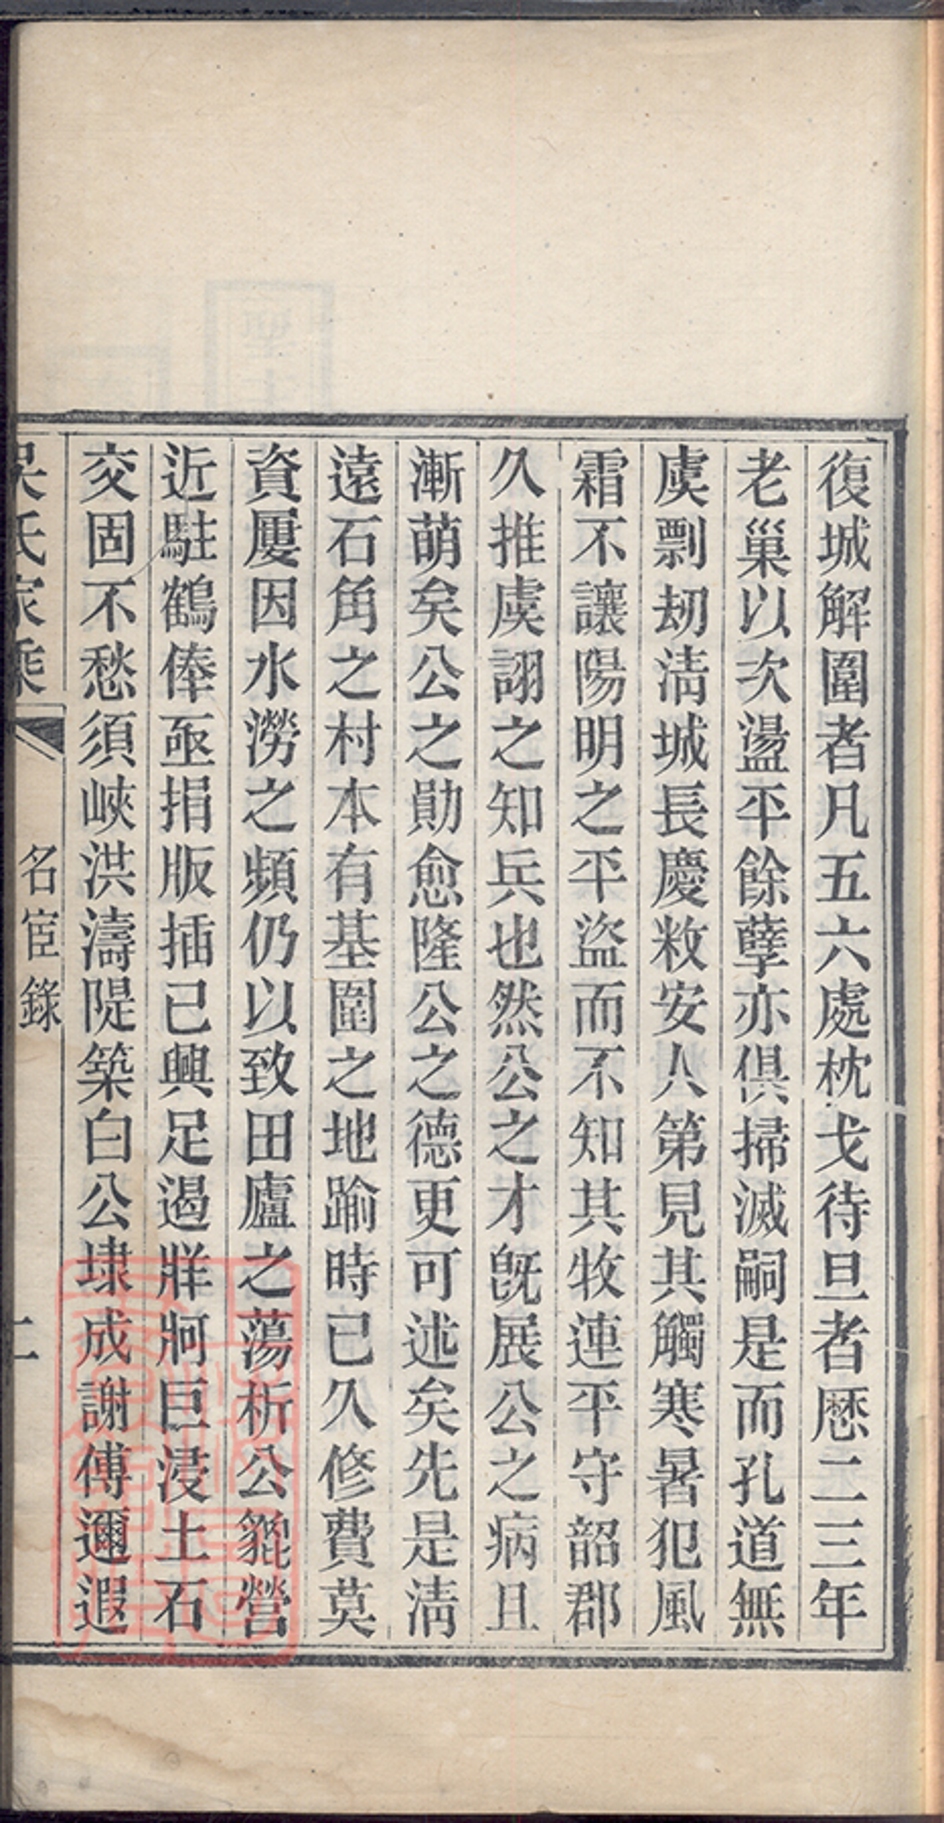 復城解圍者凡五六處枕戈待旦者厯二三年
老巢以次盪平餘孽亦俱掃滅嗣是而孔道無
虞剽刼清城長慶敉安人第見其觸寒暑犯風
霜不讓陽明之平盜而不知其牧連平守韶郡
久推虞詡之知兵也然公之才旣展公之病且
漸萌矣公之勛愈隆公之德更可述矣先是清
遠石角之村本有基圍之地踰時已久修費莫
資屢因水澇之頻仍以致田廬之蕩析公甈營
近駐鶴俸亟捐版插己興足遏牂牁巨浸土石
交固不愁須峽洪濤隄築白公埭成謝傅邇遐
吳氏家乘
名宦錄
二